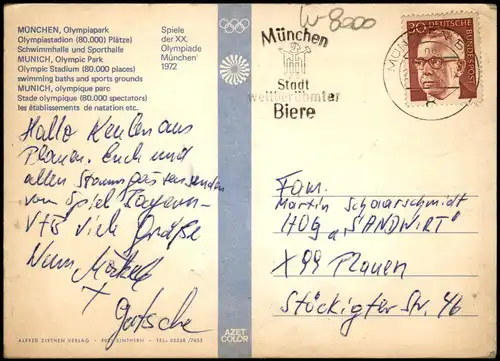 MÜNCHEN, Olympiapark
Olympiastadion (80.000) Plätze)
Schwimmhalle und Sporthalle
MUNICH, Olympic Park
Olympic Stadium (80.000 places)
swimming baths and sports grounds
MUNICH, olympique parc
Stade olympique (80.000 spectators)
les établissements de natation etc.
Spiele
der XX.
Olympiade
München
1972
W-8000
München
Stadt
weltberühmter
Biere
30
DEUTSCHE
BUNDESPOST
Hallo Kerlen aus
Plauen. Euch und
allen Stammgästen senden
vom Spiel Bayern-
VfB viele Grüße
Märkel
+
Fam.
Martin Schaarschmidt
HOG "SANDWIRT"
X99 Plauen
Stöckigter Str. 46
ALFRED ZIETHEN VERLAG · 5021 SINTHERN · TEL. 02238 /7655
AZET
COLOR